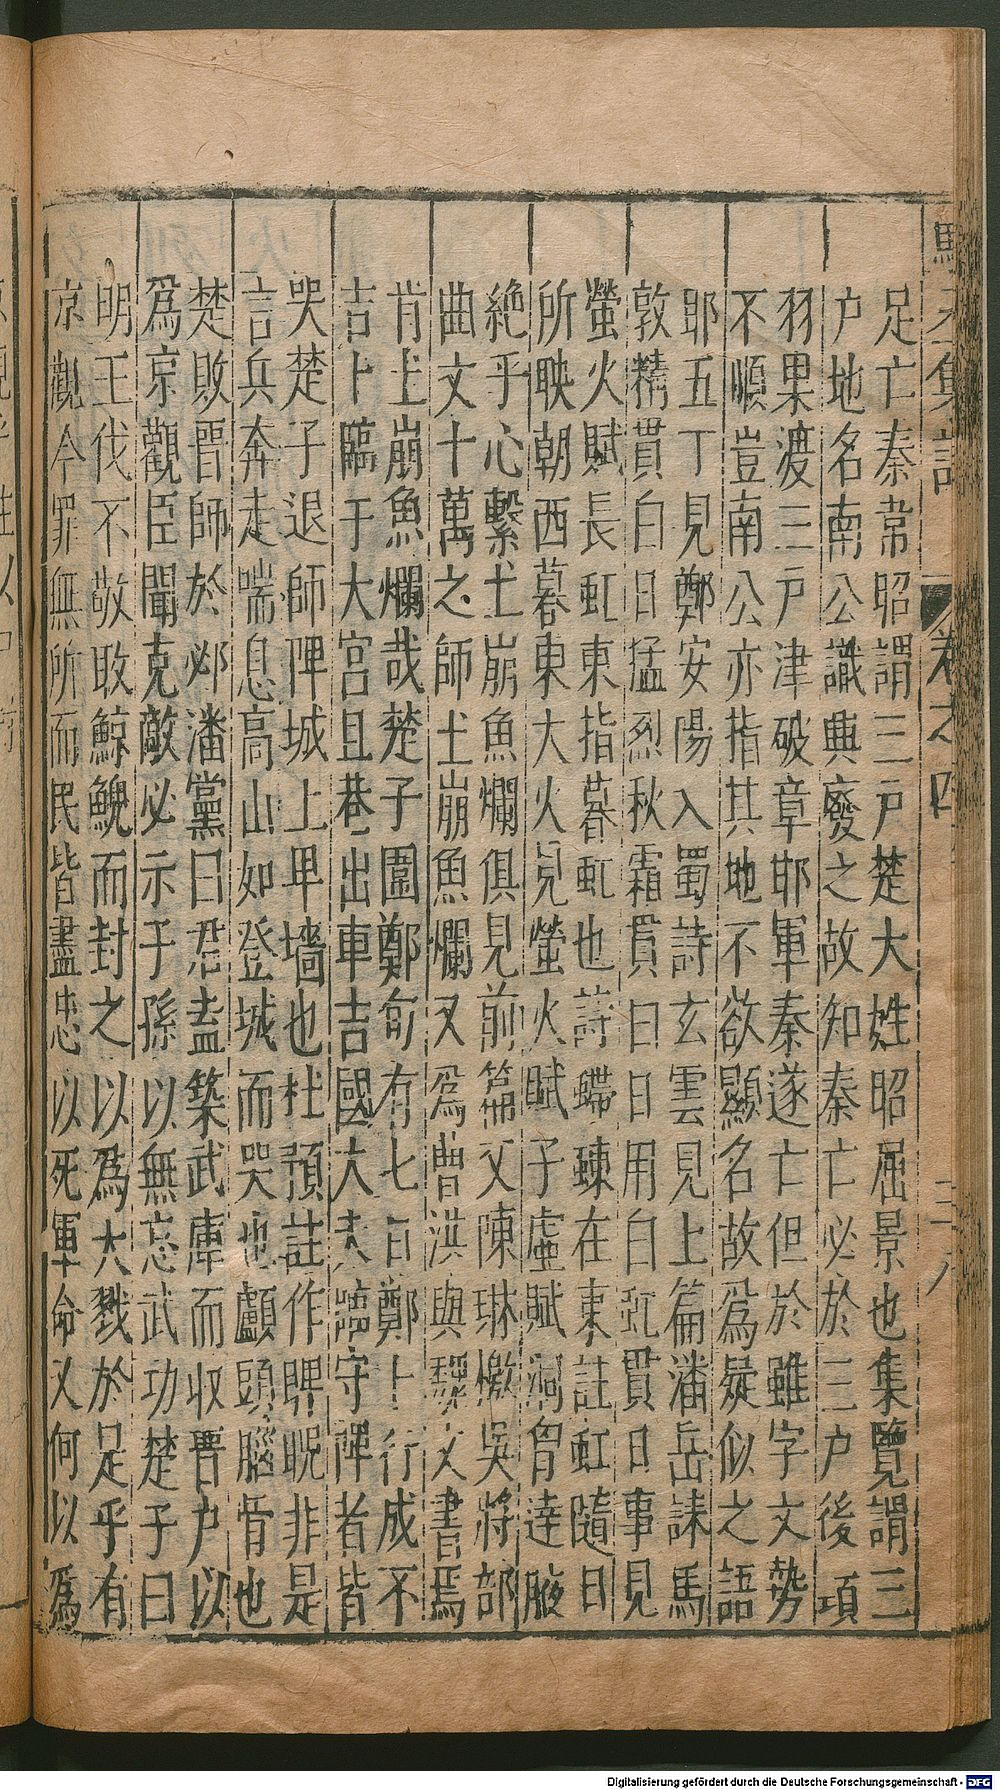 足亡秦常昭謂三戸楚大姓昭屈景也集覽謂三
户地名南公識興廢之故知秦亡必於三户後項
羽果渡三戸津破章耶軍秦遂亡但於雖字文勢
不順豈南公亦指其地不欲顯名故爲疑似之語
耶五丁見鄭安陽入蜀詩玄雲見上篇潘岳誄馬
敦精貫白日猛烈秋霜貫日日用白虹貫日事見
螢火賦長虹東指暮虹也詩蝃蝀在東註虹隨日
所映朝西暮東大火見螢火賦子虛賦洞胷達腋
絶乎心繫土崩魚爛俱見前篇父陳琳檄吳將部
曲文十萬之師土崩魚爛又爲曹洪與魏文書焉
肯土崩魚爛哉楚子圍鄭旬有七日鄭卜行成不
吉卜臨于大宮且巷出車吉國大夫臨守陴者皆
哭楚子退師陴城上甲墻也杜預註作睥睨非是
言兵奔走喘息高山如登城而哭也顱頭腦骨也
楚敗晋師於邲潘黨曰君盍築武庫而収晋户以
爲京觀臣聞克敵必示子孫以無忘武功楚子曰
明王伐不敬取鯨鯢而封之以爲大戮於足乎有
京觀今罪無所而民皆盡忠以死軍命又何以爲
卷之四
Digitalisierung gefördert durch die Deutsche Forschungsgemeinschaft - DFG